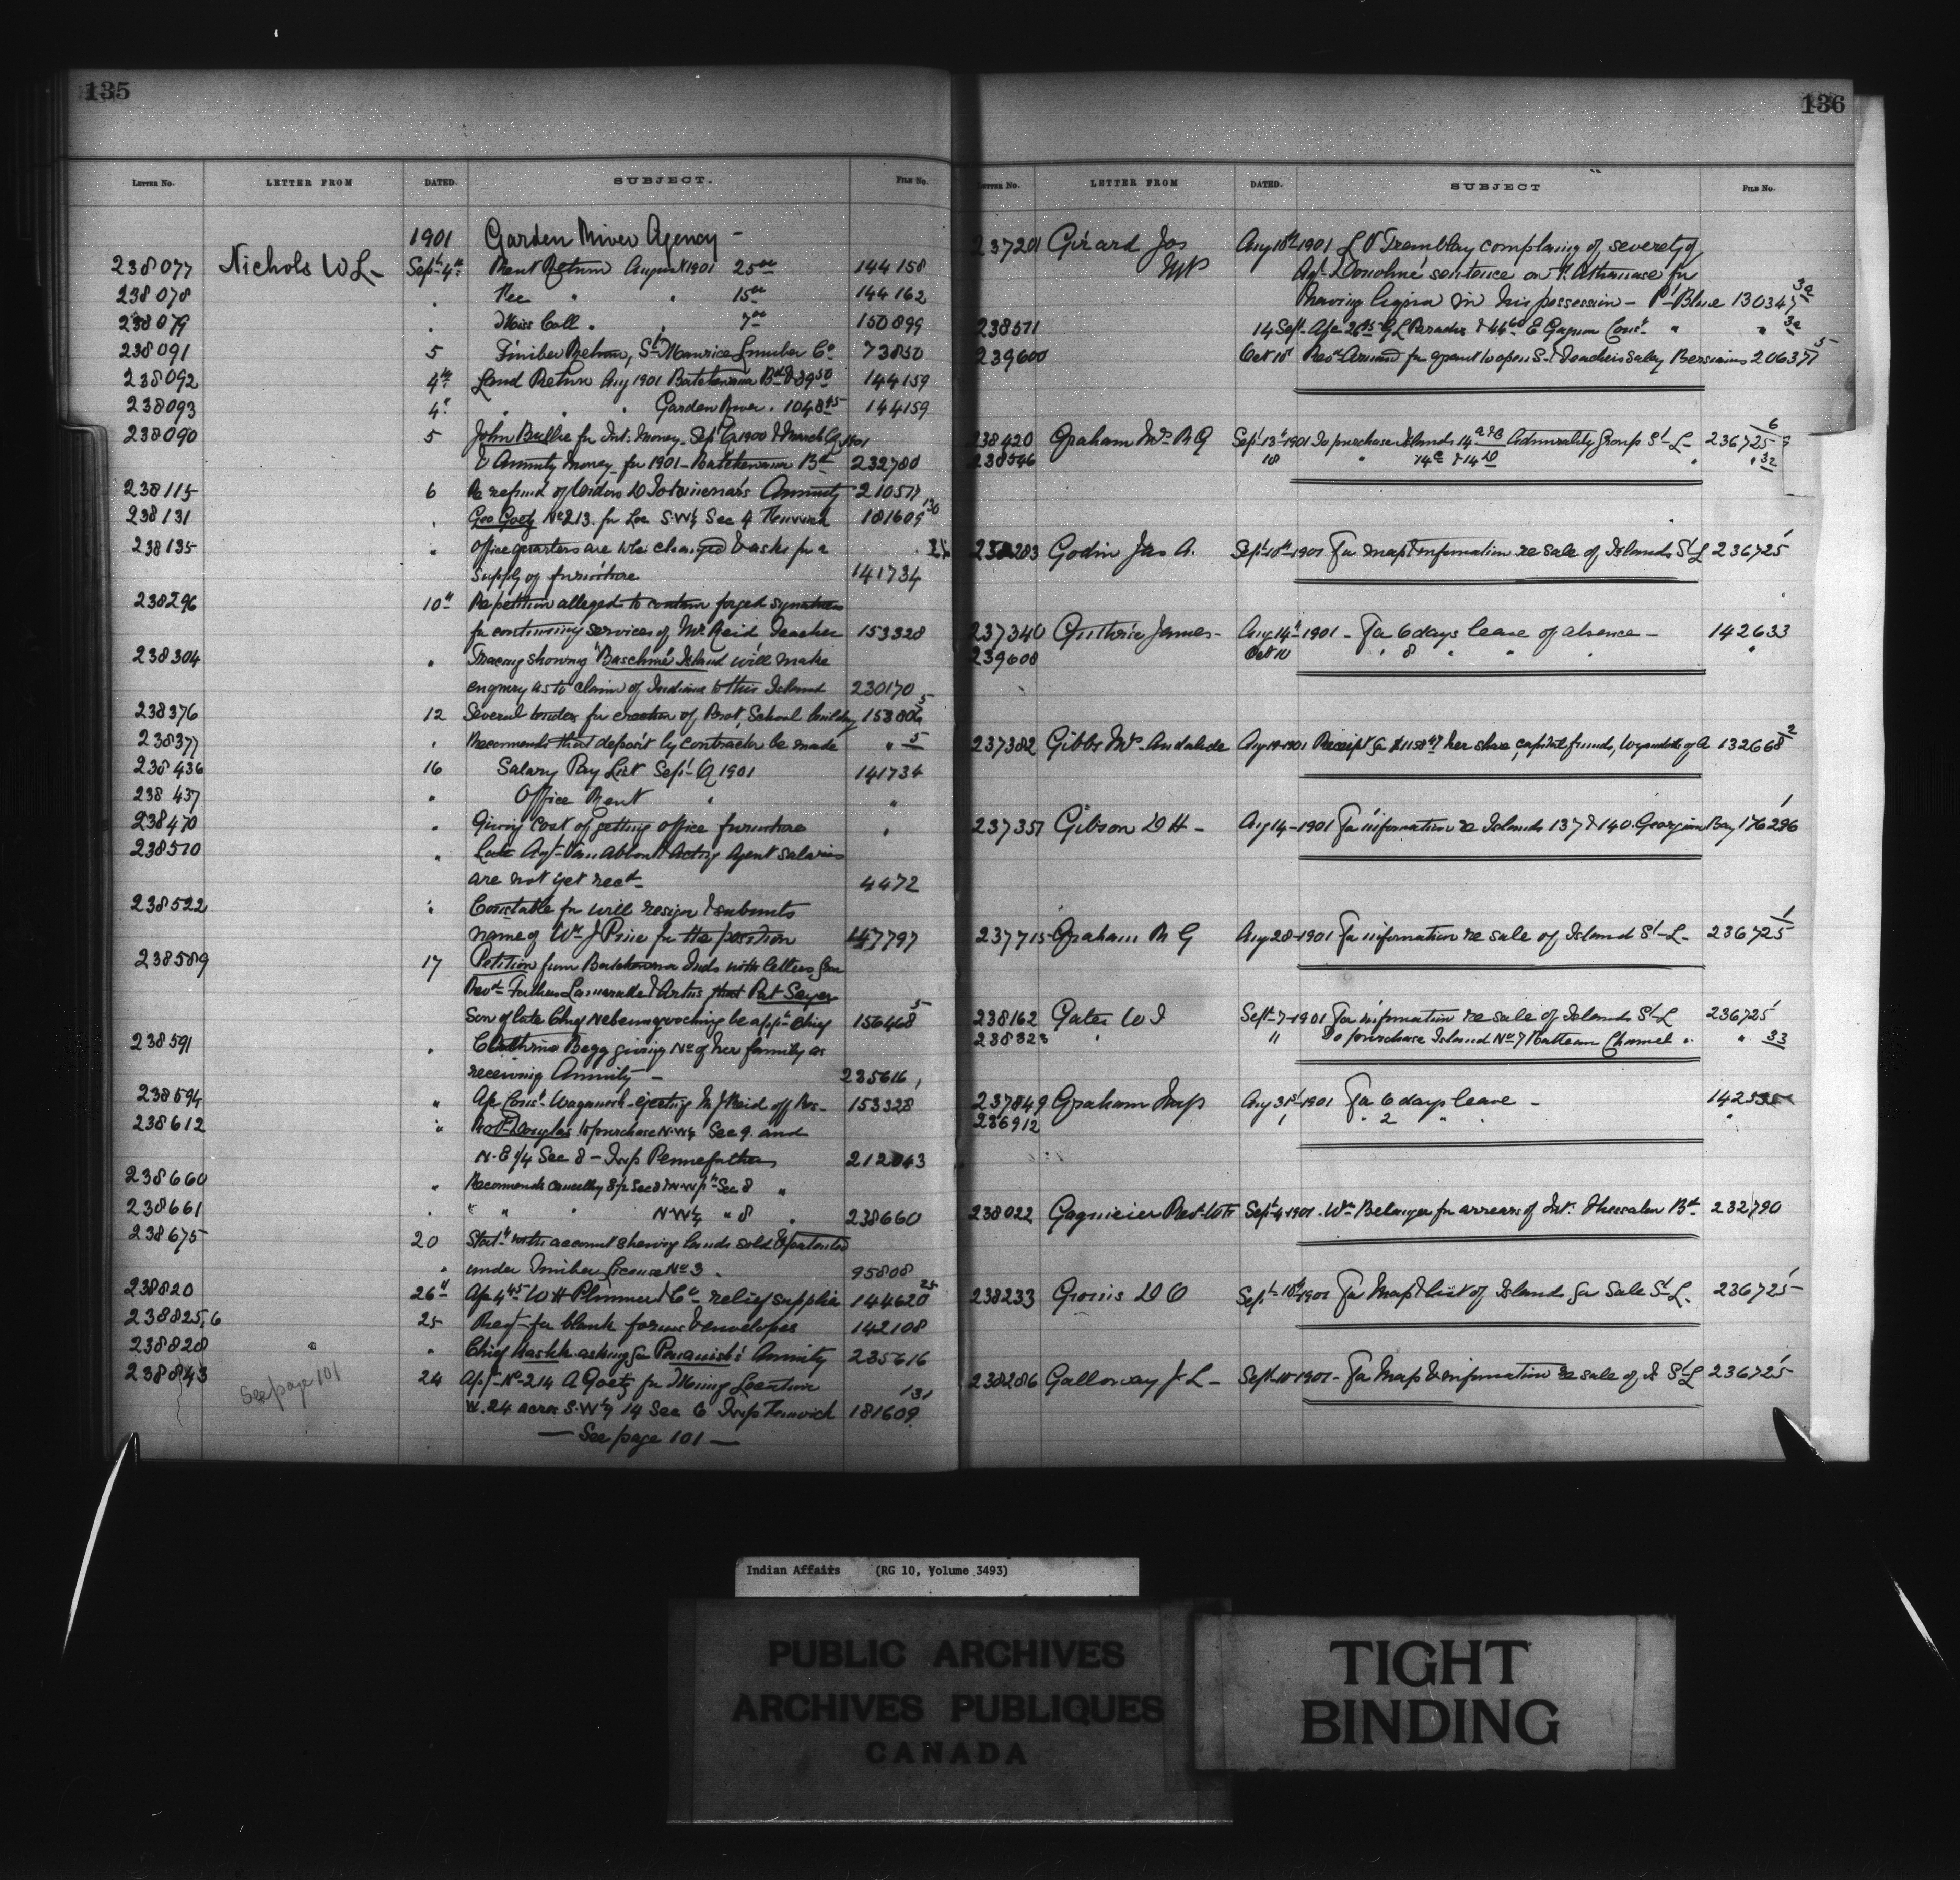 135
LETTER No. LETTER FROM DATED. SUBJECT. FILE No.
1901 Garden River Agency -
238077 Nichols W L - Sept 4th Rent Return August 1901 25 00 144158
238078 " Fee " " 15 00 144162
238079 " Miss Coll. " 7 00 150899
238091 5 Timber Return, St Maurice Lumber Co 73850
238092 4th Land Return Aug 1901 Batchewana Bd $89 50 144159
238093 4th " " " Garden River . 1048 45 144159
238090 5 John Bullie for Int. Money - Sept Q 1900 & March Q 1901
& Annuity Money for 1901 - Batchewana Bd 232780
238115 6 Re refund of Annuity 210577
238131 " Geo Goetz No 213. for Loc S.W¼ Sec 4 Fenwick 181609 130
238135 " Office quarters are to be changed & asks for a
supply of furniture 141734
238296 10th Re petition alleged to contain forged signatures
for continuing services of Mr Reid Teacher 153328
238304 " Tracing showing Island will make
enquiry as to claim of Indians to this Island 230170
238376 12 Several tenders for erection of Prot. School building 153806 5
238377 " Recommends that deposit by contractor be made " 5
238436 16 Salary Pay List Sept Q 1901 141734
238437 " Office Rent " "
238470 " Giving cost of getting office furniture "
238510 " Late Agt Van Abbott & Acting Agent salaries
are not yet recd 4472
238522 " Constable for will resign & submits
name of Wm J Price for the position 147797
238589 17 Petition from Batchewana Inds with letters from
Revd Fathers & Artus that Pat Sayer
Son of late Chief Nebenagoching be apptd Chief 156468 5
238591 " Cathrine Begg giving No of her family as
receiving Annuity - 235616
238594 " Afe Const Waganosh - ejecting M J Reid off Res - 153328
238612 " Robt Douglas to purchase N.W¼ Sec 9. and
N.E ¼ Sec 8 - Twp Pennefather 212843
238660 " Recommends cancelling Sec 8 "
238661 " " " " N.W¼ " 8 " 238660
238675 20 Statt with account shewing lands sold & patented
" under Timber License No 3 . 95808
238820 26th Afe 4 45 W H Plummer & Co relief supplies 144620 25
238825,6 25 Req - for blank forms & envelopes 142108
238828 " " Chief asking for Penanish's Annuity 235616
238843 See page 101 24 Appn No 214 A Goetz for Mining Location
W. 24 acres S.W¼ 14 Sec 6 Twp Fenwick 181609 131
— See page 101 —
136
LETTER No. LETTER FROM DATED. SUBJECT FILE No.
237201 Girard Jos MP Aug 10th 1901 L O Tremblay complaing of severety of
Agt Donohue sentence on T. Athanase for
having liquor in his possession - Pt Bleue 130345 3a
238571 14 Sept Afe 26 45 G L Paradis & 44 60 E Gagnon Const " " 3a
239600 Oct 10th Revd Arnaud for grant to open S. & Teachers salary Bersimis 206377 5
238420 Graham Mrs R G Sept 13th 1901 To purchase Islands 14 A & B Admirality Group St L - 236725 6
238546 18 " 14 C & 14 D " " 32
238283 Godin Jas A. Sept 10th 1901 For map & information re sale of Islands St L 236725
237340 Guthrie James - Aug 14th 1901 - For 6 days leave of absence - 142633
239608 Oct 10 " 8 " " " "
237382 Gibbs Mrs Andalede Aug 14 1901 Receipt for $1158 47 her share, capital funds, Wyandotts of A 132668 2
237357 Gibson D H - Aug 14 - 1901 For information re Islands 137 & 140. Georgian Bay 176296
237715 Graham R G Aug 28 - 1901 For information re sale of Island St L - 236725
238162 Gates W I Sept 7 - 1901 For information re sale of Islands St L 236725
238323 " 11 To purchase Island No 7 Channel " " 33
237849 Graham Aug 31st 1901 For 6 days leave -
236912 " " 2 " " "
238022 Gagnieier Rev Sept 4 1901 - Wm Belanger for arrears of Int: Thessalon Bd 232790
238233 Grovis D O Sept 10th 1901 For Map & list of Islands for Sale St L - 236725
238286 Galloway J L - Sept 10 1901 - For Map & information re sale of I St L 236725
Indian Affairs (RG 10, Volume 3493)
PUBLIC ARCHIVES
ARCHIVES PUBLIQUES
CANADA
TIGHT
BINDING